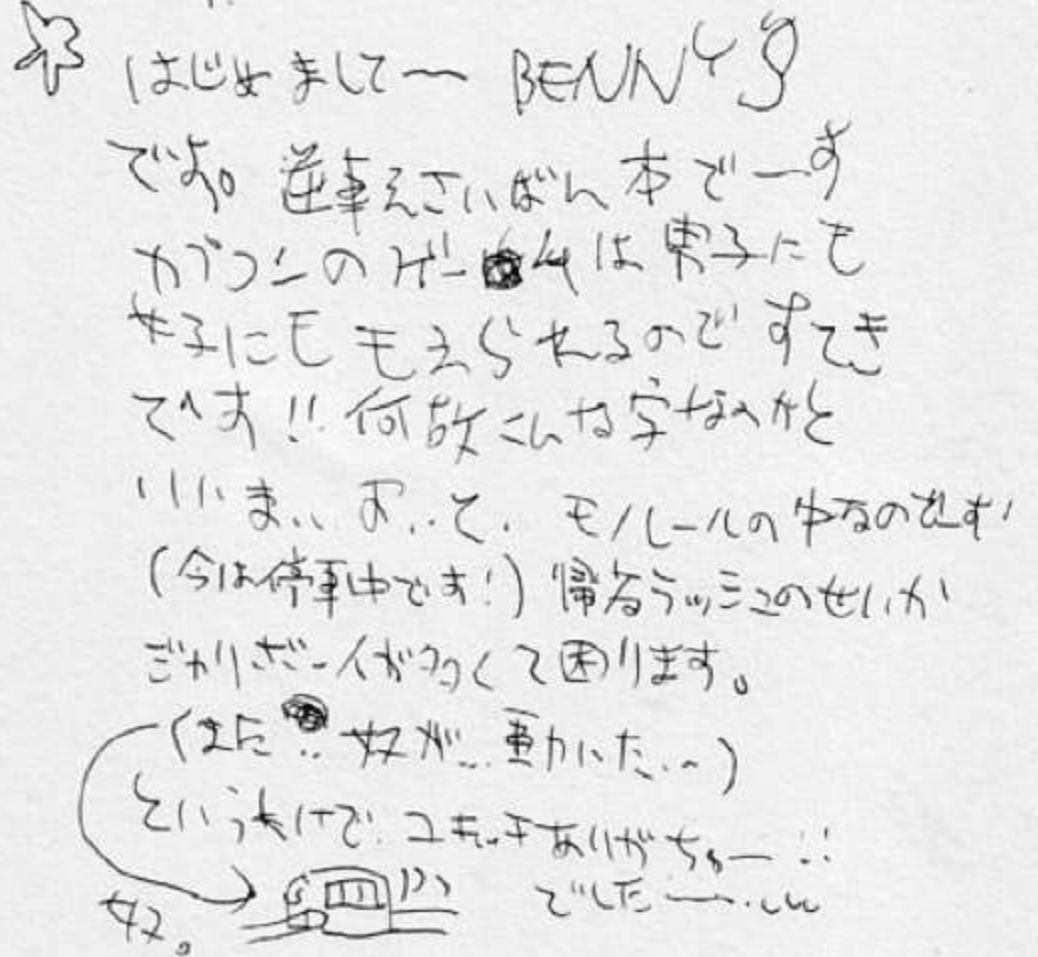 はじめまして〜 BENNY'S
です。逆転さいばん本でーす
カプコンのゲームは男子にも
女子にももえられるのですてき
です!!何故こんな字なのかと
いいま、、すと、モノレールの中なのです
(今は停車中です!)帰省ラッシュのせいか
人が多くて困ります。
(また..奴が...動いた..〜)
というわけで、ユキッチありがちゅー!!
でしたー
奴。